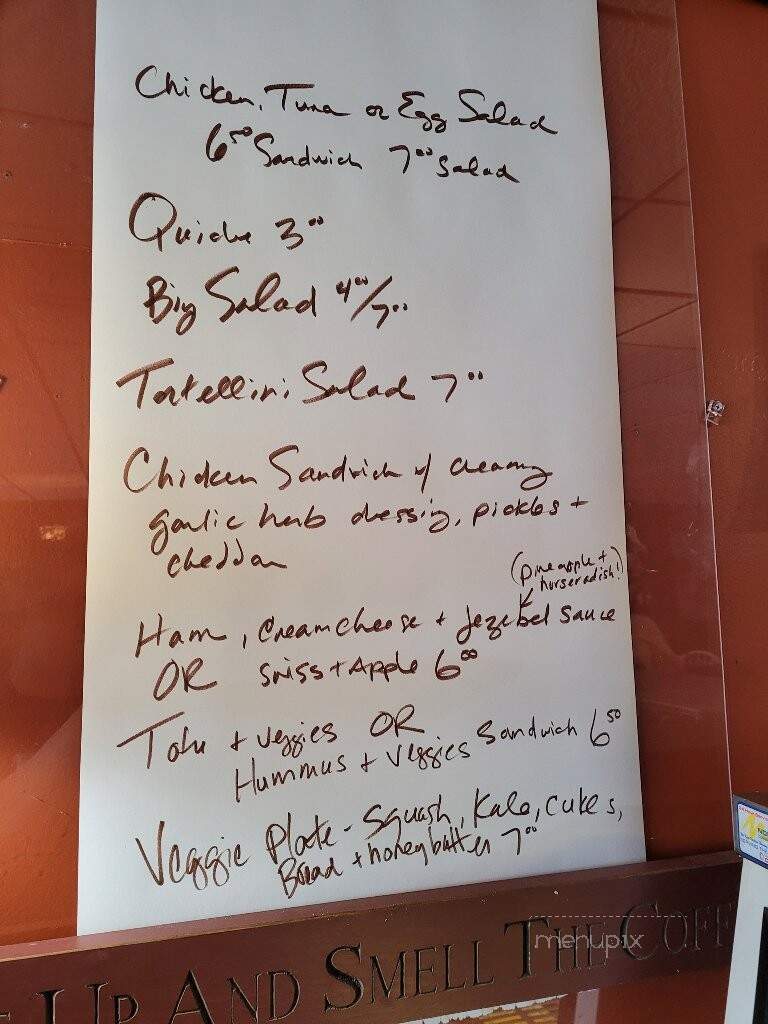 Chicken, Tuna or Egg Salad
6⁵⁰ Sandwich 7⁰⁰ Salad
Quiche 3⁰⁰
Big Salad 4⁰⁰/7⁰⁰
Tortellini Salad 7⁰⁰
Chicken Sandwich w/ creamy
garlic herb dressing, pickles +
cheddar
(pineapple +
horseradish!)
Ham, Creamcheese + Jezebel sauce
OR swiss + Apple 6⁰⁰
Tofu + veggies OR
Hummus + Veggies Sandwich 6⁵⁰
Veggie Plate - Squash, Kale, cukes,
Bread + honeybutter 7⁰⁰
menupix
UP AND SMELL THE COFF